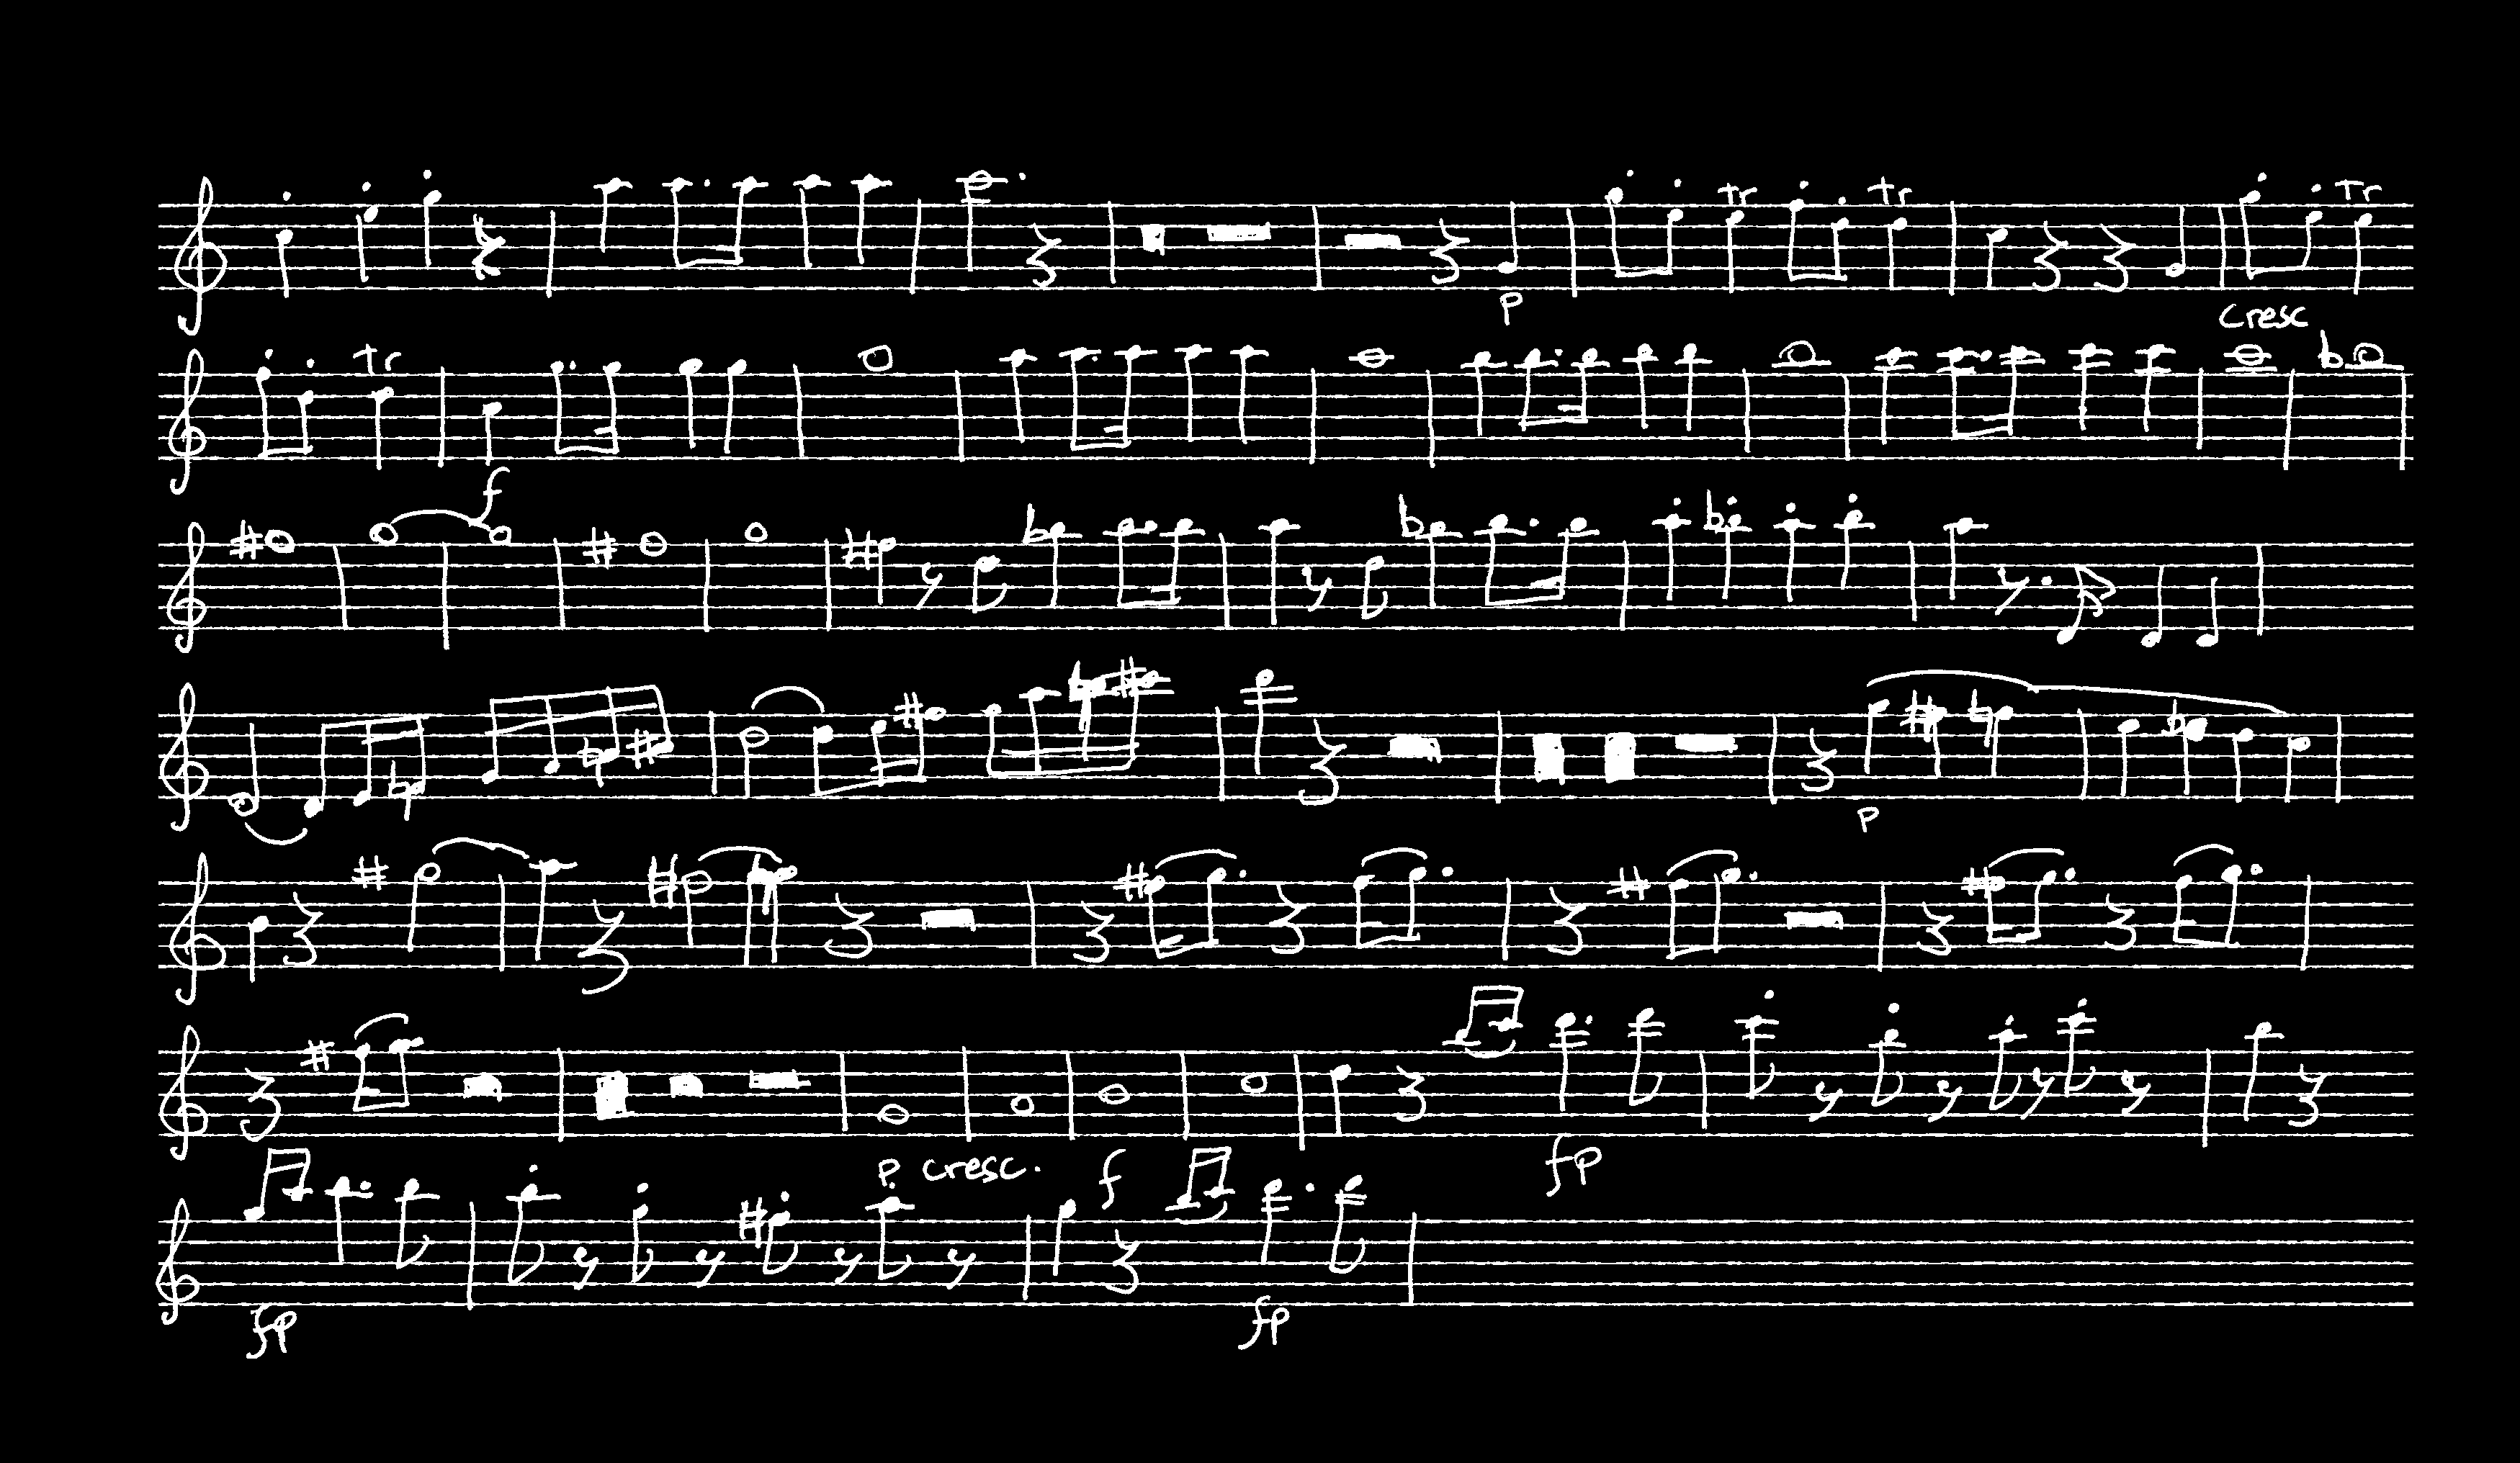 tr tr tr
p
cresc
tr
f
p
fp
p cresc. f
fp fp